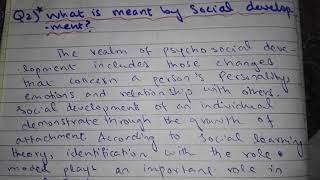 Q2)* What is meant by Social develop
-ment?
The realm of psychosocial deve-
lopment includes those changes
that concern a person's personality,
emotions and relationship with others.
Social development of an individual
demonstrate through the growth of
attachment. According to social learning
theory, identification with the role
model plays an important role in